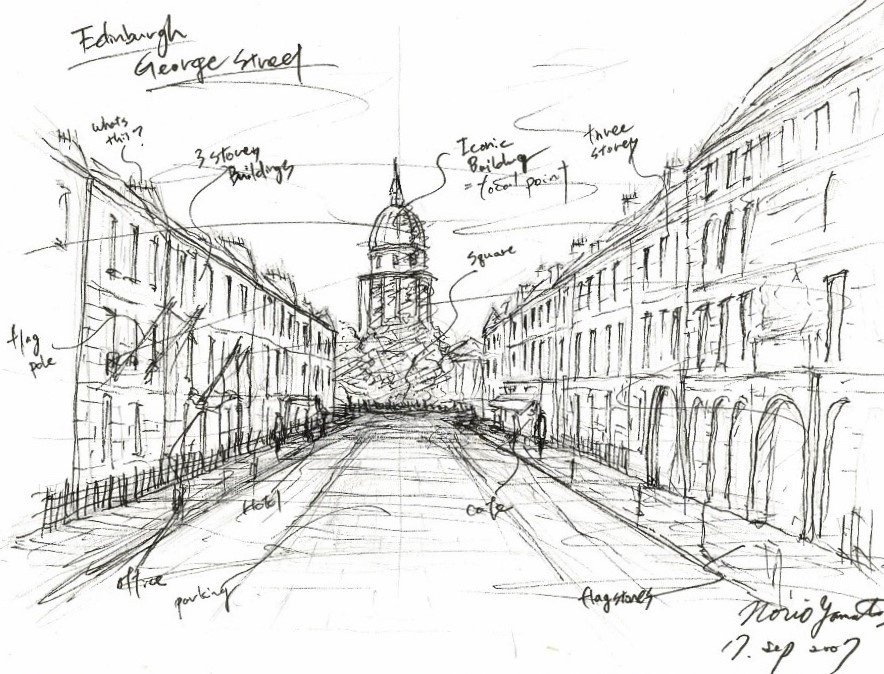 Edinburgh
George Street
whats
this?
3 storey
Buildings
Iconic
Building
= focal point
three
storey
square
flag
pole
Hotel
cafe
office
parking
flagstones
Norio
17. Sep 2007